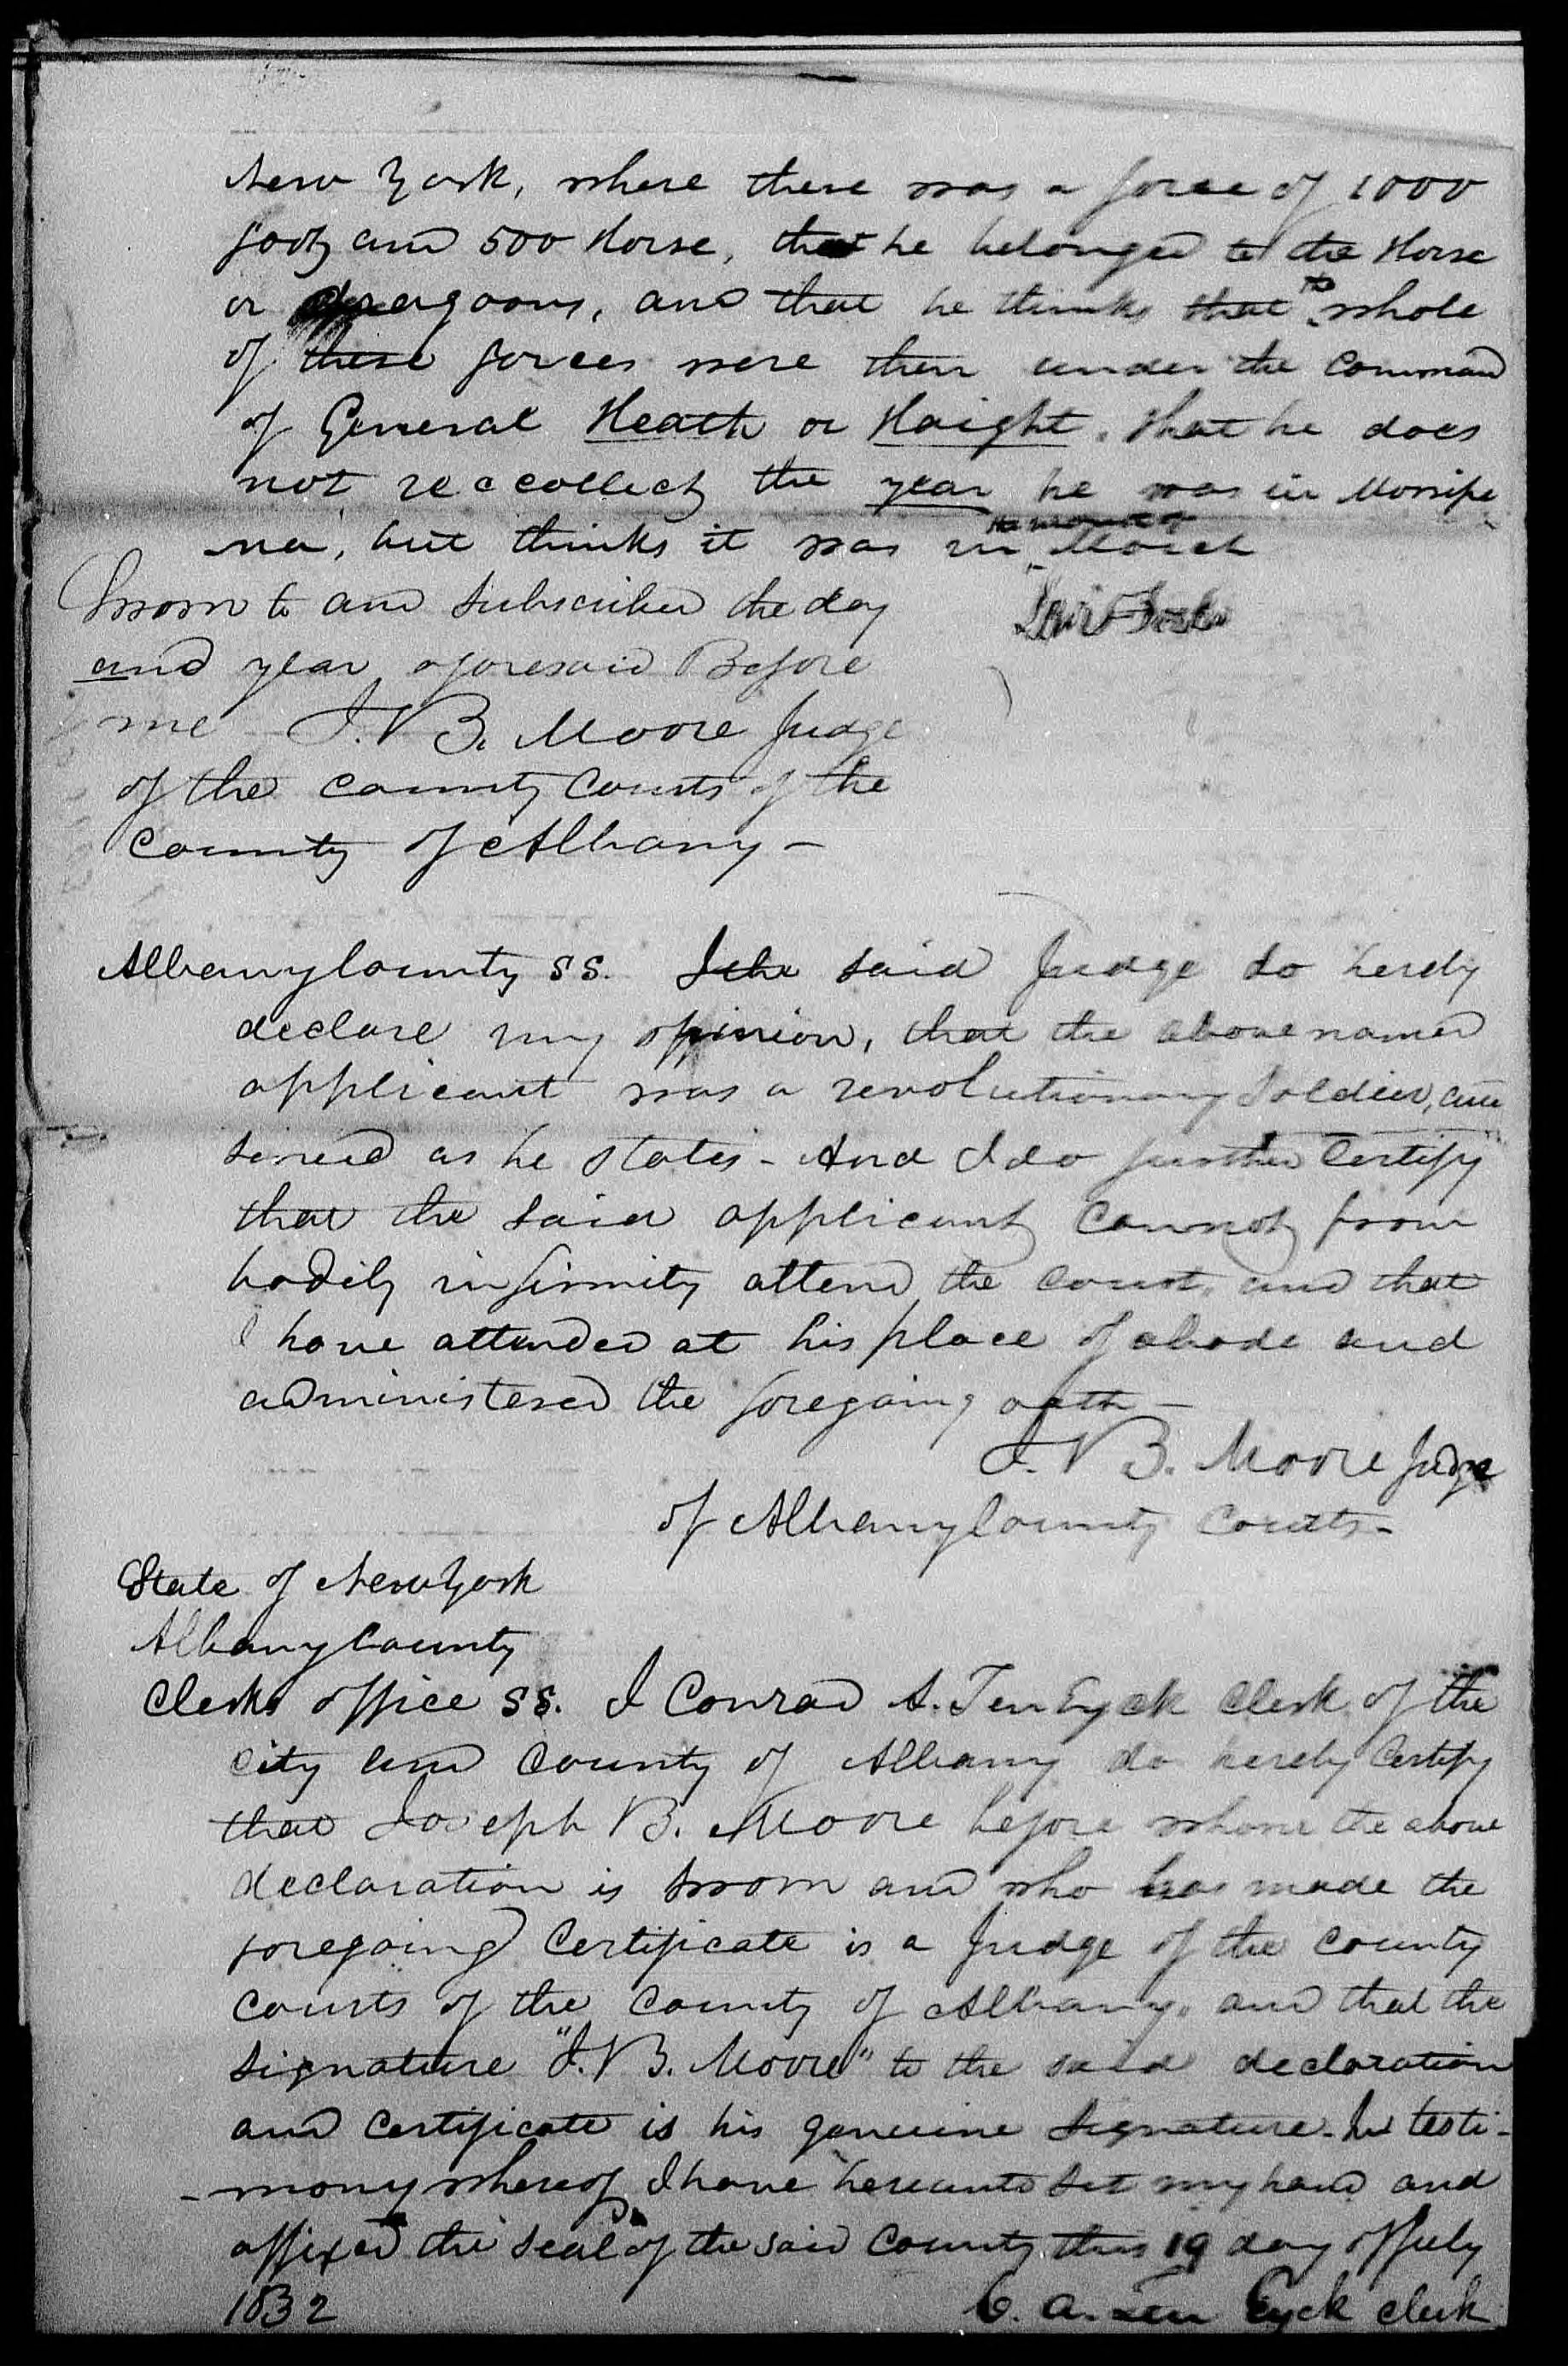 New York, where there was a force of 1000
foot and 500 Horse, that he belonged to the Horse
or dragoons, and that he thinks that the whole
of these forces were then under the command
of General Heath or Haight. That he does
not reccollect the year he was in Morrise
na, but thinks it was in the month of March
Sworn to and subscribed the day
and year aforesaid Before
me J. B. Moore Judge
of the county Courts of the
County of Albany -
Albany County SS. I the said Judge do hereby
declare my opinion, that the above named
applicant was a revolutionary Soldier, and
served as he states - And I do further Certify
that the said applicant cannot from
bodily infirmity attend the court, and that
I have attended at his place of abode and
administered the foregoing oath -
J. B. Moore Judge
of Albany County Courts -
State of New York
Albany County
Clerks office SS. I Conrad A. Ten Eyck Clerk of the
city and County of Albany do hereby Certify
that Joseph B. Moore before whom the above
declaration is sworn and who has made the
foregoing Certificate is a Judge of the County
Courts of the County of Albany, and that the
signature "J. B. Moore" to the said declaration
and certificate is his genuine signature. In testi-
-mony whereof I have hereunto set my hand and
affixed the seal of the said County this 19 day of July
1832 C. A. Ten Eyck Clerk